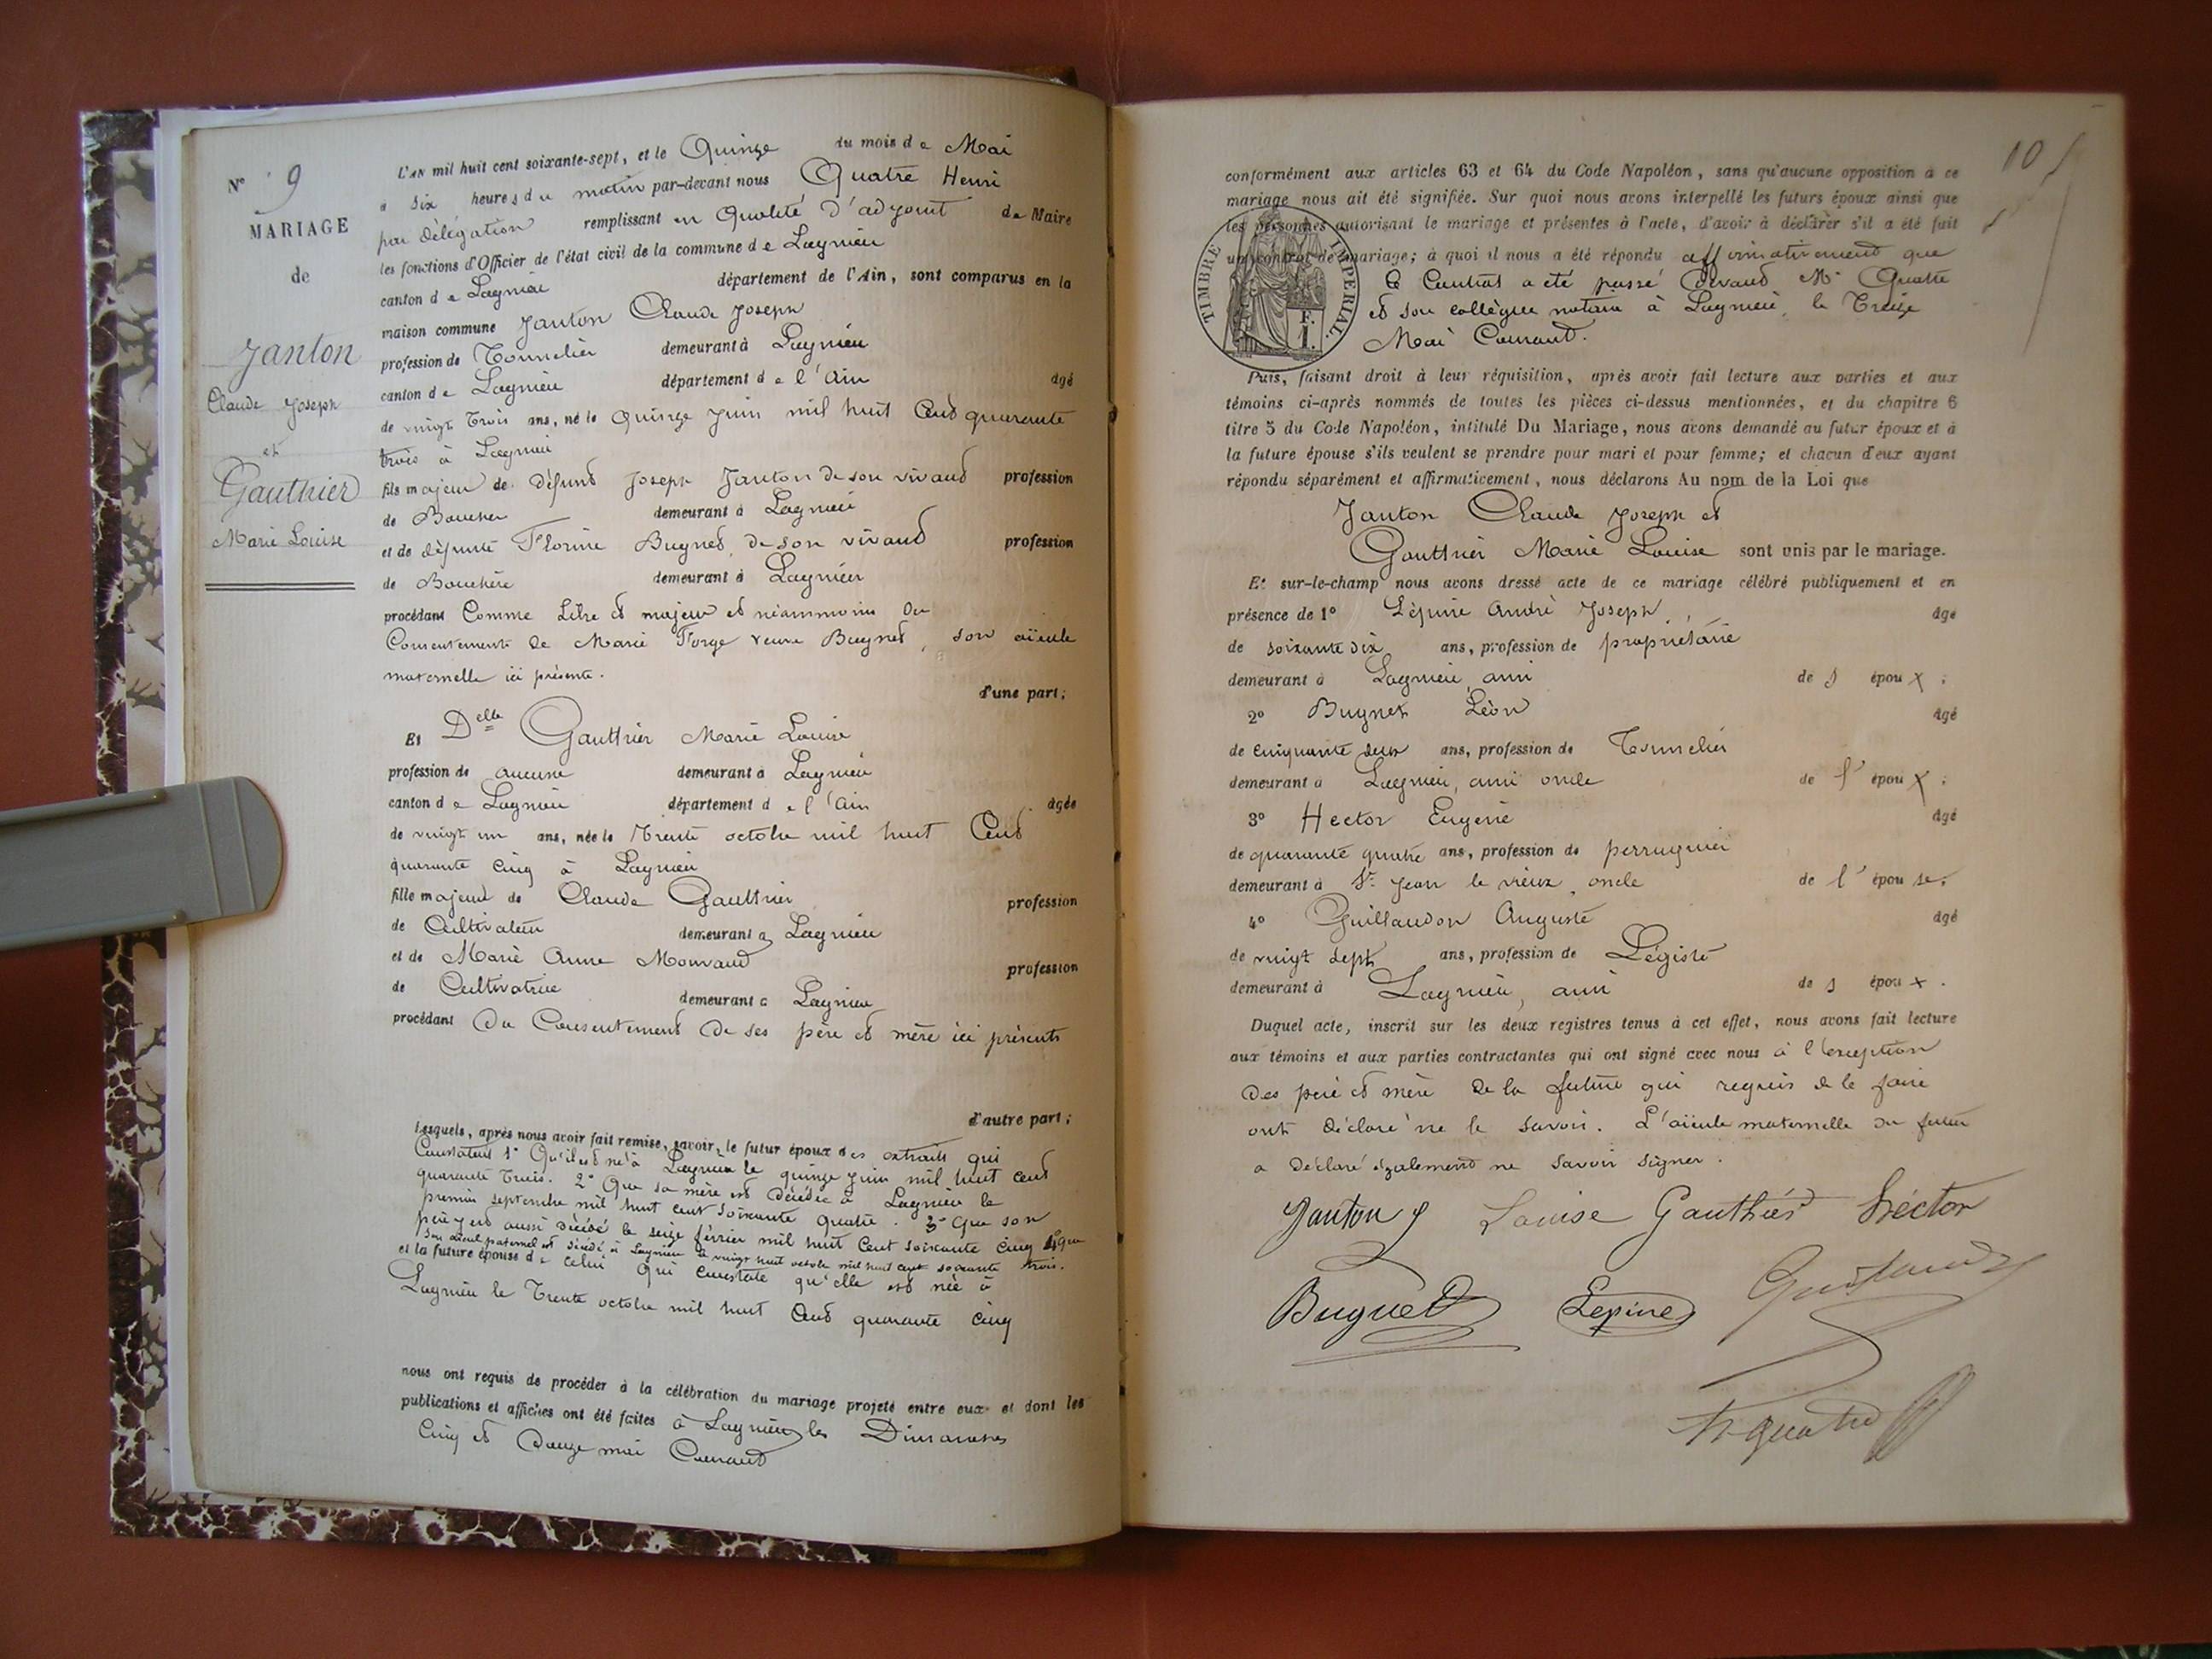 N° 9
MARIAGE
de
Janton
Claude Joseph
et
Gauthier
Marie Louise
L'AN mil huit cent soixante-sept, et le Quinze du mois de Mai
à six heures du matin par-devant nous Quatre Henri
par délégation remplissant en Qualité d'adjoint de Maire
les fonctions d'Officier de l'état civil de la commune de Lagnieu
canton de Lagnieu département de l'Ain, sont comparus en la
maison commune Janton Claude Joseph
profession de Tonnelier demeurant à Lagnieu
canton de Lagnieu département de l'Ain âgé
de vingt trois ans, né le quinze juin mil huit Cent quarante
trois à Lagnieu
fils majeur de défunt Joseph Janton de son vivant profession
de Boucher demeurant à Lagnieu
et de défunte Florine Bugnet, de son vivant profession
de Bouchère demeurant à Lagnieu
procédant Comme Libre et majeur et néammoins du
Consentement de Marie Forge veuve Bugnet, son aïeule
maternelle ici présente.
d'une part;
Et Delle Gauthier Marie Louise
profession de aucune demeurant à Lagnieu
canton de Lagnieu département de l'Ain âgée
de vingt un ans, née le Trente octobre mil huit Cent
quarante cinq à Lagnieu
fille majeure de Claude Gauthier profession
de Cultivateur demeurant à Lagnieu
et de Marie Anne Monvand profession
de Cultivatrice demeurant à Lagnieu
procédant du Consentement de ses père et mère ici présents
d'autre part;
lesquels, après nous avoir fait remise, savoir, le futur époux des extraits qui
Constatent 1° Qu'il est né à Lagnieu le quinze juin mil huit cent
quarante trois. 2° Que sa mère est décédée à Lagnieu le
premier septembre mil huit cent soixante quatre. 3° Que son
père y est aussi décédé le seize février mil huit cent soixante cinq 4° que
son aïeul paternel est décédé à Lagnieu le vingt huit octobre mil huit cent soixante trois.
et la future épouse de celui qui constate qu'elle est née à
Lagnieu le Trente octobre mil huit Cent quarante cinq
nous ont requis de procéder à la célébration du mariage projeté entre eux et dont les
publications et affiches ont été faites à Lagnieu les Dimanches
Cinq et Douze mai Courant
10
conformément aux articles 63 et 64 du Code Napoléon, sans qu'aucune opposition à ce
mariage nous ait été signifiée. Sur quoi nous avons interpellé les futurs époux ainsi que
les personnes autorisant le mariage et présentes à l'acte, d'avoir à déclarer s'il a été fait
un contrat de mariage; à quoi il nous a été répondu affirmativement que
TIMBRE IMPERIAL.
F.
1.
le Contrat a été passé devant Me Quatre
et son collègue notaire à Lagnieu, le Treize
Mai Courant.
Puis, faisant droit à leur réquisition, après avoir fait lecture aux parties et aux
témoins ci-après nommés de toutes les pièces ci-dessus mentionnées, et du chapitre 6
titre 5 du Code Napoléon, intitulé Du Mariage, nous avons demandé au futur époux et à
la future épouse s'ils veulent se prendre pour mari et pour femme; et chacun d'eux ayant
répondu séparément et affirmativement, nous déclarons Au nom de la Loi que
Janton Claude Joseph et
Gauthier Marie Louise sont unis par le mariage.
Et sur-le-champ nous avons dressé acte de ce mariage célébré publiquement et en
présence de 1° Lépine André Joseph, âgé
de soixante dix ans, profession de propriétaire
demeurant à Lagnieu, ami de s époux;
2° Bugnet Léon âgé
de cinquante deux ans, profession de Tonnelier
demeurant à Lagnieu, ami oncle de l'époux;
3° Hector Eugène âgé
de quarante quatre ans, profession de perruquier
demeurant à St Jean le vieux, oncle de l'épouse;
4° Guillaudon Auguste âgé
de vingt sept ans, profession de Légiste
demeurant à Lagnieu, ami de s époux.
Duquel acte, inscrit sur les deux registres tenus à cet effet, nous avons fait lecture
aux témoins et aux parties contractantes qui ont signé avec nous à l'exception
des père et mère de la future qui requis de le faire
ont déclaré ne le savoir. L'aïeule maternelle du futur
a déclaré également ne savoir signer.
Janton J Louise Gauthier Hector
Bugnet Lepine
H quatre